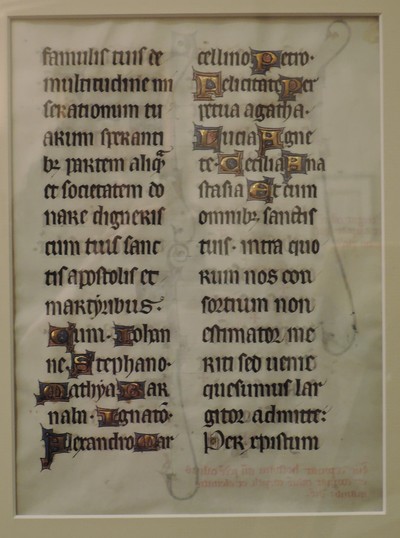 famulis tuis de
multitudine mi
serationum tu
arum speranti
bȝ partem aliqͣ
et societatem do
nare digneris
cum tuis sanc
tis apostolis et
martÿribus.
Cum. Iohan
ne. Stephano.
Mathÿa Bar
naba. Ignatō.
Alexandro Mar
cellino Petro.
Felicitate Per
petua agatha.
Lucia Agne
te. Cecilia Ana
stasia Et cum
omnibȝ. sanctis
tuis. intra quo
rum nos con
sortium non
estimator me
riti sed uenie
quesumus lar
gitor admitte:
Per xpistum